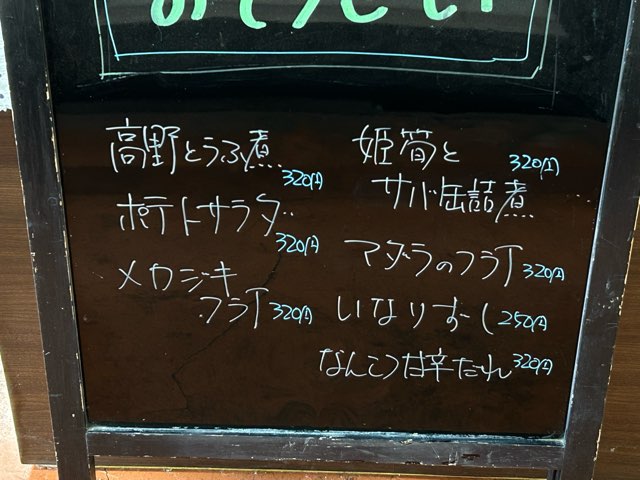 おそうざい
高野とうふ煮
320円
ポテトサラダ
320円
メカジキ
フライ 320円
姫筍と
サバ缶詰煮
320円
マダラのフライ 320円
いなりずし 250円
なんこつ甘辛たれ 320円